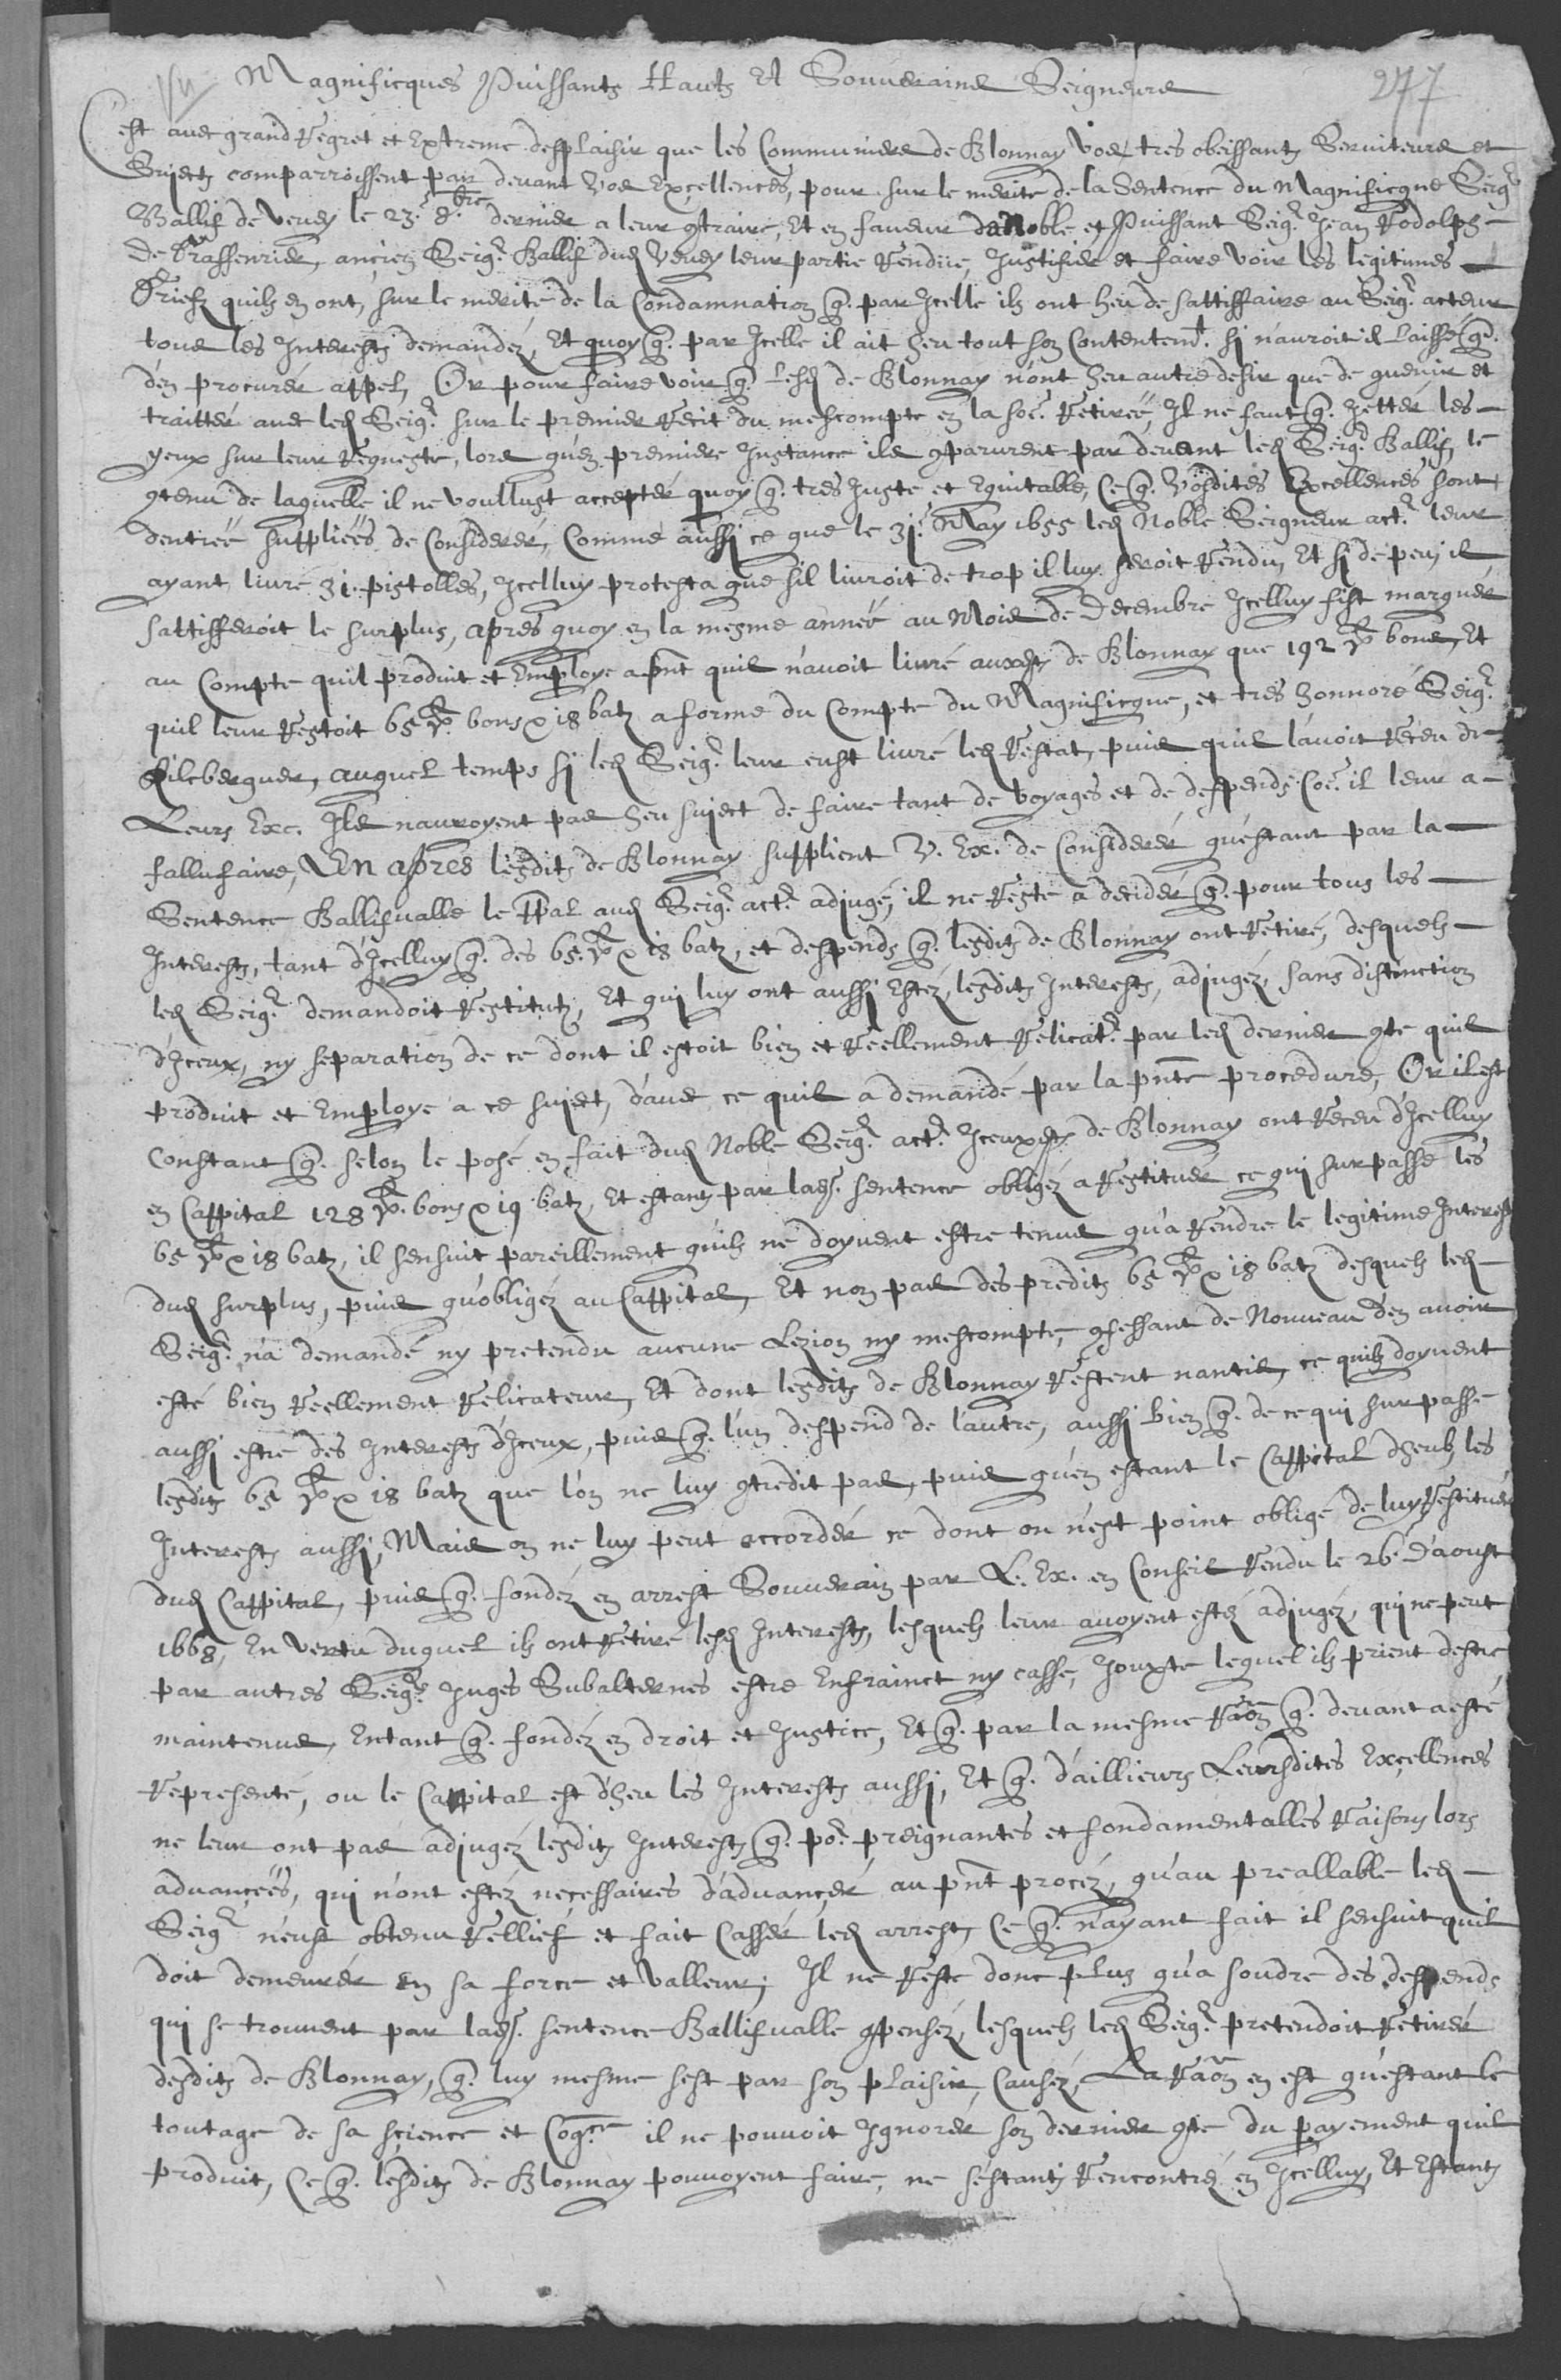 Magnificques Puissants Hauts Et Souverains Seigneurs
277
C'est avec grand Regret et Extreme desplaisir que les Communiers de Blonnay vos tres obeissants Serviteurs et
Sujects comparroissent par devant vos Excellences, pour sur le merite de la Sentence du Magnificque Seigr
Ballif de Vevey le 23e 8bre dernier a leur 9traire, Et en faveur de Noble et Puissant Seigr Jean Rodolph
De Graffenried, ancien Seigr Ballif dud Vevey leur partie Rendüe, Justifier et faire voir les legitimes
Griefz quilz en ont, sur le merite de la Condamnation q. par Icelle ilz ont heu de sattiffaire au Seigr acteur
tous les Interests demandéz, Et quoy q. par Icelle il ait heu tout son Contentemt. si n'auroit il laissé
d'en procurer appel, Or pour faire voir q. lesd de Blonnay n'ont heu autre desir que de
traitter avec led Seigr sur le premier Recit du mescompte en la Retirée, Il ne faut q. Jetter les
yeux sur leur Requeste, lors qu'en premiere Instance ils 9parurent par devant led Seigr Ballif, le
9tenu de laquelle il ne voullust accepter quoy q. tres Juste et Equitable, Ce q. Vosdites Excellences sont
dentrée suppliées de Considerer, Comme aussi ce que le 31e May 1655 led Noble Seigneur actr leur
ayant livré 31. pistolles, Icelluy protesta que sil livroit de trop il luy seroit Rendu, Et si de peu, il
sattifferoit le surplus, apres quoy en la mesme année au Mois de Decembre Icelluy fist marquer
au Compte quil produit et Employe a pnt quil n'avoit livré auxdts de Blonnay que 192 bons, Et
quil leur Restoit 65 bons x 18 batz a forme du Compte du Magnificque, et tres honnoré Seigr
auquel temps si led Seigr leur eust livré led Restat, puis quil l'avoit Receu de
Leurs Exc. Ils nauroyent pas heu suject de faire tant de voyages et de despends Coe il leur a
fallu faire, En apres lesdits de Blonnay supplient V. Ex. de Considerer qu'estant par la
Sentence Ballifvalle le ppal aud Seigr actr adjugé, il ne Reste a decider q. pour tous les
Interests, tant d'Icelluy q. des 65 x 18 batz, et despends q. lesdits de Blonnay ont Retiré, desquels
led Seigr demandoit Restitutz, Et qui luy ont aussi Estéz, lesdits Interests, adjugéz, sans distinction
d'Iceux, ny separation de ce dont il estoit bien et Reellement Relicatr par led dernier 9te quil
produit et Employe a ce suject, d'avec ce quil a demandé par la pnte procedure, Or il est
Constant q. selon le posé en fait dud Noble Seigr actr Iceuxdts de Blonnay ont Receu d'Icelluy
en Cappital 128 bons x 19 batz, Et estants par ladte sentence obligéz a Restituer ce qui surpasse les
65 x 18 batz, il sensuit pareillement quilz ne doyvent estre tenus qu'a Rendre le legitime Interest
dud surplus, puis qu'obligéz au Cappital, Et non pas des predits 65 x 18 batz desquels led
Seigr n'a demandé ny pretendu aucune Lezion ny mescompte, 9fessant de Nouveau d'en avoir
esté bien Reellement Relicateur, Et dont lesdits de Blonnay Restent nantis, ce quilz doyvent
aussi estre des Interests d'Iceux, puis q. l'un despend de l'autre, aussi bien q. de ce qui surpasse
lesdits 65 x 18 batz que l'on ne luy 9tredit pas, puis qu'en estant le Cappital dheub, les
Interests aussi, Mais on ne luy peut accorder ce dont on n'est point obligé de luy Restituer
dud Cappital, puis q. fondéz en arrest Souverain par L. Ex. en Conseil Rendu le 26e d'aoust
1668, En vertu duquel ilz ont Retiré lesd Interests, lesquels leur avoyent estéz adjugéz, qui ne peut
par autres Seigrs Juges Subalternes estre Enfrainct ny cassé, Jouxte lequel ilz prient destre
maintenus, Entant q. fondéz en droit et Justice, Et q. par la mesme Raon q. devant a esté
Representé, ou le Cappital est dheu les Interests aussi, Et q. d'aillieurs Leursdites Excellences
ne leur ont pas adjugéz lesdits Interests q. por preignantes et fondamentalles Raisons lors
advancées, qui n'ont estéz necessaires d'advancer au pnt procéz, qu'au preallable led
Seigr n'eust obtenu Rellief et fait Casser led arrest, Ce q. n'ayant fait il sensuit quil
doit demeurer en sa force et valleur; Il ne Reste donc plus qu'a soudre des despends
qui se trouvent par ladte sentence Ballifvalle 9pensez, lesquels led Seigr pretendoit Retirer
desdits de Blonnay, q. luy mesme sest par son plaisir, Causéz, La Raon en est qu'estant le
toutage de sa science et Cogce il ne pouvoit Ignorer son dernier 9te du payement quil
produit, Ce q. lesdits de Blonnay pouvoyent faire, ne s'estants Rencontréz en Icelluy, Et Estants